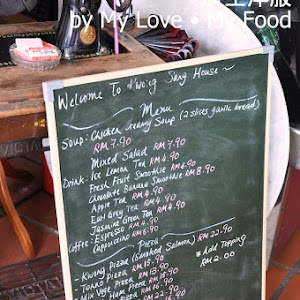 土洋服
by My Love • My Food
Welcome To Kwong Sang House~
Menu
Soup: Chicken Creamy Soup (2 slices garlic bread)
RM 7.90
Mixed Salad RM 7.90
Drink: Ice Lemon Tea RM 4.90
Fresh Fruit Smoothie RM 6.90
Chocolate Banana Smoothie RM 8.90
Apple Tea RM 4.90
Earl Grey Tea RM 4.90
Jasmine Green Tea RM 4.90
Coffee: Espresso RM 4.90
Cappuccino RM 6.90
Pizza
- Kwong Pizza (Smoked Salmon) RM 22.90
- Tonno Pizza RM 15.90
- Mix Vege Pizza RM 13.90
Ham Pizza RM 16.90
* Add Topping
RM 2.00